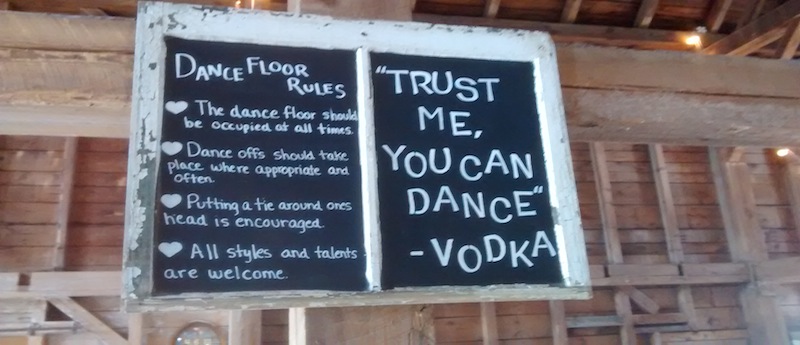 DANCE FLOOR
RULES
The dance floor should
be occupied at all times.
Dance offs should take
place where appropriate and
often.
Putting a tie around ones
head is encouraged.
All styles and talents
are welcome.
"TRUST
ME,
YOU CAN
DANCE"
- VODKA